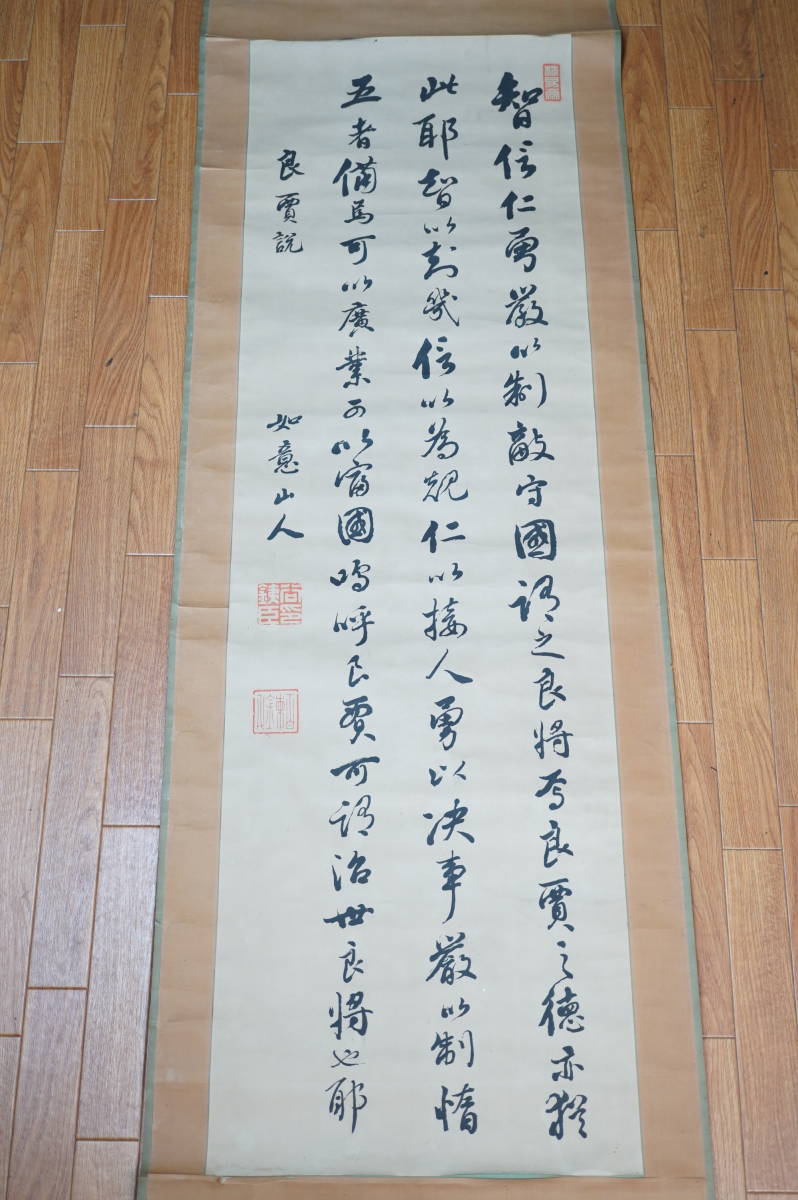 智信仁勇嚴以制敵守國謂之良將焉良賈之德亦猶
此耶智以知幾信以為規仁以接人勇以决事嚴以制惰
五者備焉可以廣業可以富國嗚呼良賈可謂治世良將也耶
良賈說
如意山人